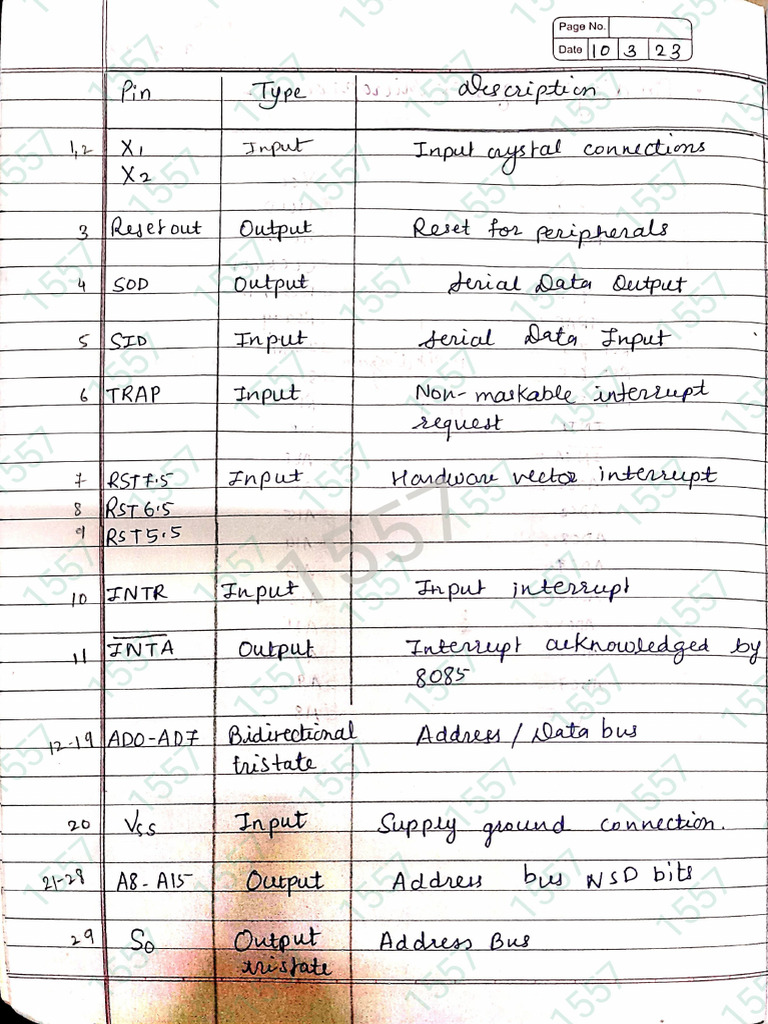 Page No.
Date 10 3 23
Pin Type Description
1,2 X1 Input Input crystal connections
X2
3 Reset out Output Reset for peripherals
4 SOD Output Serial Data Output
5 SID Input Serial Data Input
6 TRAP Input Non-maskable interrupt
request
7 RST7.5 Input Hardware vector interrupt
8 RST6.5
9 RST5.5
10 INTR Input Input interrupt
11 I̅N̅T̅A̅ Output Interrupt acknowledged by
8085
12-19 AD0-AD7 Bidirectional Address / Data bus
tristate
20 Vss Input Supply ground connection.
21-28 A8-A15 Output Address bus NSD bits
29 S0 Output Address Bus
tristate
1557